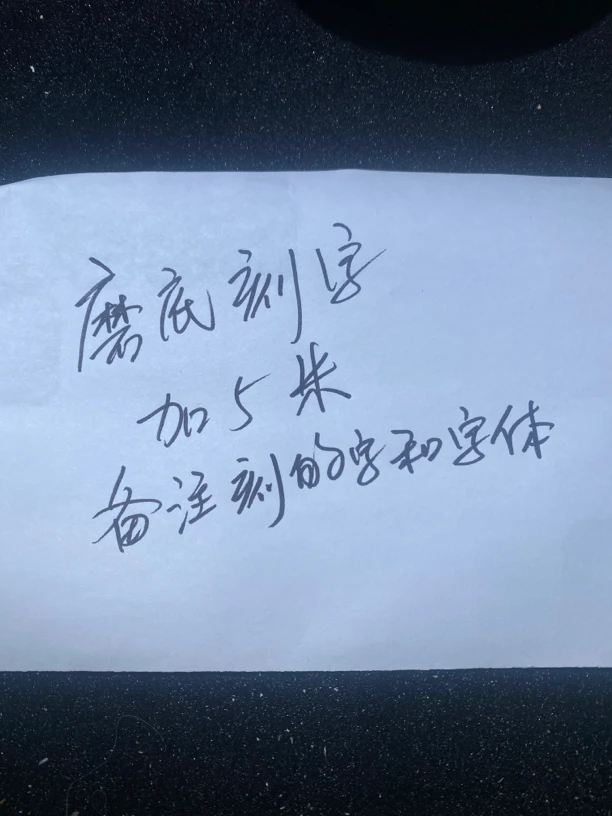 磨底刻字
加5米
备注刻的字和字体